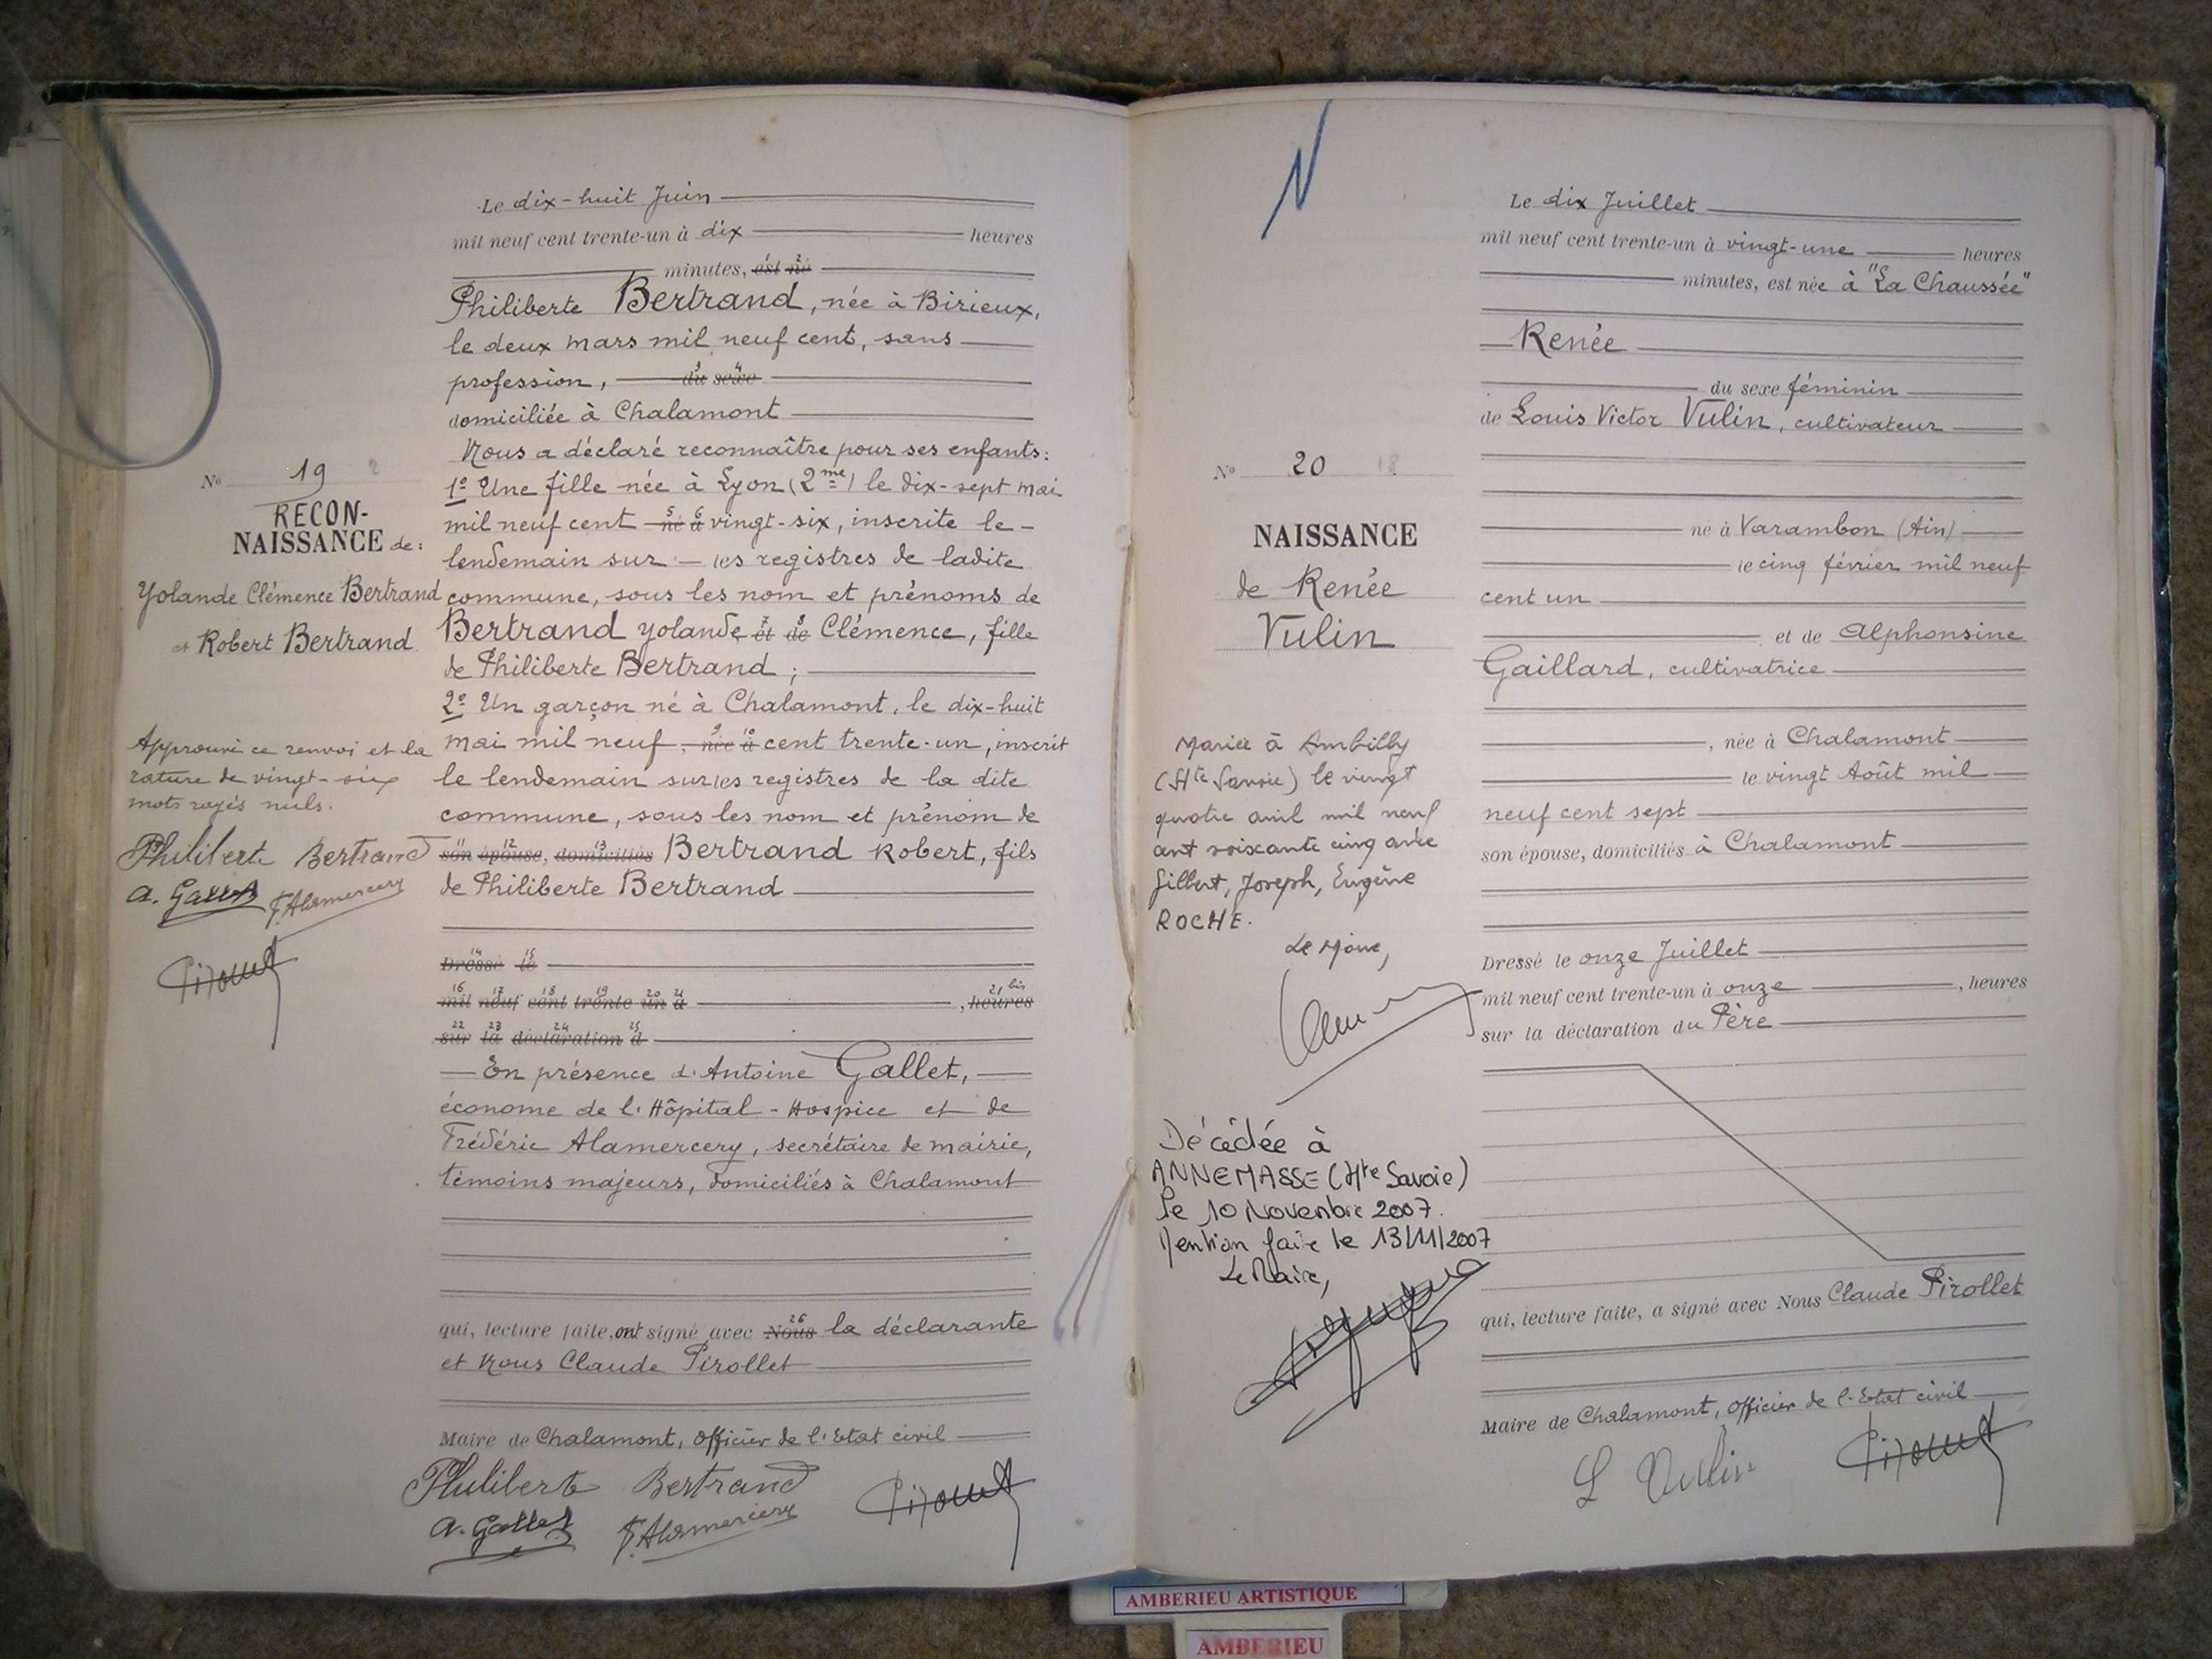 Le dix-huit Juin
mil neuf cent trente-un à dix heures
minutes, est né
Philiberte Bertrand, née à Birieux,
le deux mars mil neuf cent, sans
profession, du sexe
domiciliée à Chalamont
Nous a déclaré reconnaître pour ses enfants:
1º Une fille née à Lyon (2me) le dix-sept mai
mil neuf cent né à vingt-six, inscrite le
lendemain sur les registres de ladite
commune, sous les nom et prénoms de
Bertrand Yolande et de Clémence, fille
de Philiberte Bertrand;
2º Un garçon né à Chalamont, le dix-huit
mai mil neuf, née à cent trente-un, inscrit
le lendemain sur les registres de la dite
commune, sous les nom et prénom de
son épouse, domiciliés Bertrand Robert, fils
de Philiberte Bertrand
Dressé le
mil neuf cent trente un à , heures
sur la déclaration d
En présence d'Antoine Gallet,
économe de l'Hôpital-Hospice et de
Frédéric Alamercery, secrétaire de mairie,
témoins majeurs, domiciliés à Chalamont
qui, lecture faite, ont signé avec Nous la déclarante
et Nous Claude Pirollet
Maire de Chalamont, officier de l'Etat civil
Philiberte Bertrand
A. Gallet F. Alamercery
Nº 19
RECON-
NAISSANCE de:
Yolande Clémence Bertrand
et Robert Bertrand
Approuvé ce renvoi et la
rature de vingt-six
mots rayés nuls.
Philiberte Bertrand
A. Gallet F. Alamercery
N
Nº 20
NAISSANCE
de Renée
Vulin
Mariée à Ambilly
(Hte Savoie) le vingt
quatre avril mil neuf
cent soixante cinq avec
Gilbert, Joseph, Eugène
ROCHE.
Le Maire,
Décédée à
ANNEMASSE (Hte Savoie)
le 10 Novembre 2007.
Mention faite le 13/11/2007
Le Maire,
Le dix Juillet
mil neuf cent trente-un à vingt-une heures
minutes, est née à "La Chaussée"
Renée
du sexe féminin
de Louis Victor Vulin, cultivateur
né à Varambon (Ain)
le cinq février mil neuf
cent un
et de Alphonsine
Gaillard, cultivatrice
, née à Chalamont
le vingt Août mil
neuf cent sept
son épouse, domiciliés à Chalamont
Dressé le onze Juillet
mil neuf cent trente-un à onze , heures
sur la déclaration du Père
qui, lecture faite, a signé avec Nous Claude Pirollet
Maire de Chalamont, officier de l'Etat civil
L Vulin
AMBERIEU ARTISTIQUE
AMBERIEU